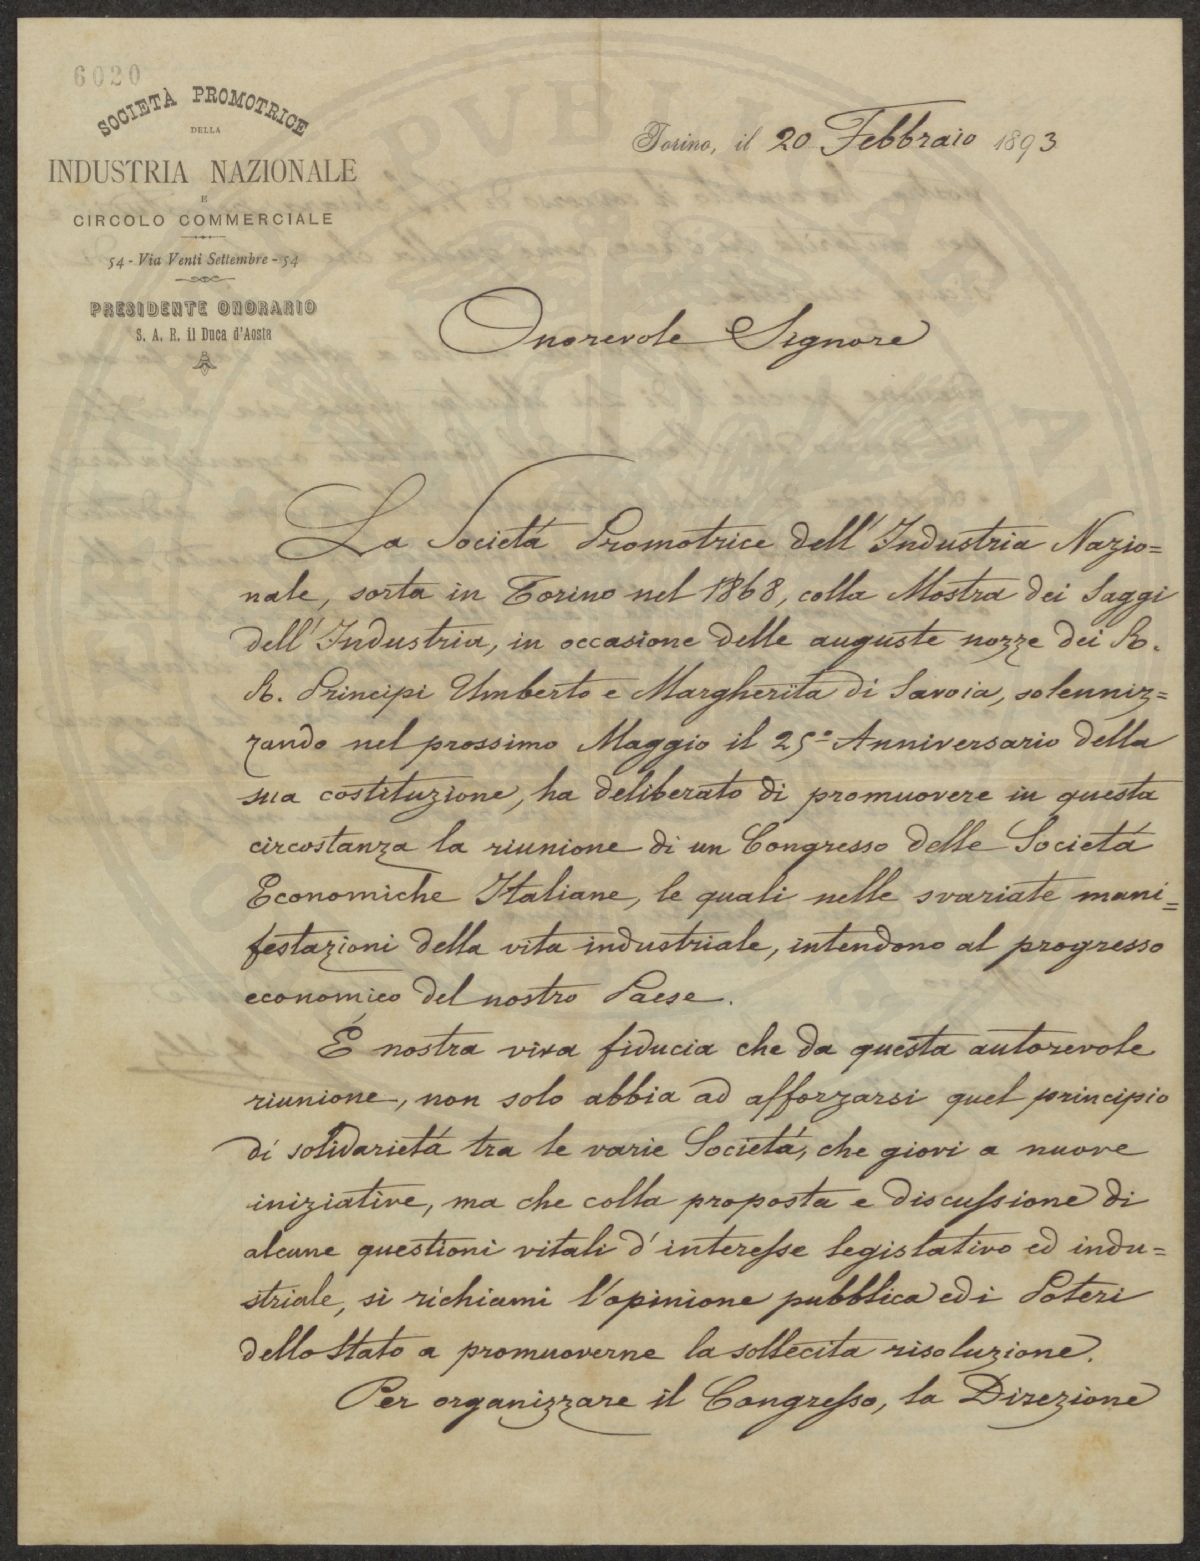 6020
SOCIETÀ PROMOTRICE
DELLA
INDUSTRIA NAZIONALE
E
CIRCOLO COMMERCIALE
54 - Via Venti Settembre - 54
PRESIDENTE ONORARIO
S. A. R. il Duca d'Aosta
Torino, il 20 Febbraio 1893
Onorevole Signore
La Società Promotrice dell'Industria Nazio=
nale, sorta in Torino nel 1868, colla Mostra dei Saggi
dell'Industria, in occasione delle auguste nozze dei R.
R. Principi Umberto e Margherita di Savoia, solenniz=
zando nel prossimo Maggio il 25º Anniversario della
sua costituzione, ha deliberato di promuovere in questa
circostanza la riunione di un Congresso delle Società
Economiche Italiane, le quali nelle svariate mani=
festazioni della vita industriale, intendono al progresso
economico del nostro Paese.
È nostra viva fiducia che da questa autorevole
riunione, non solo abbia ad afforzarsi quel principio
di solidarietà tra le varie Società, che giovi a nuove
iniziative, ma che colla proposta e discussione di
alcune questioni vitali d'interesse legislativo ed indu=
striale, si richiami l'opinione pubblica ed i Poteri
dello Stato a promuoverne la sollecita risoluzione.
Per organizzare il Congresso, la Direzione